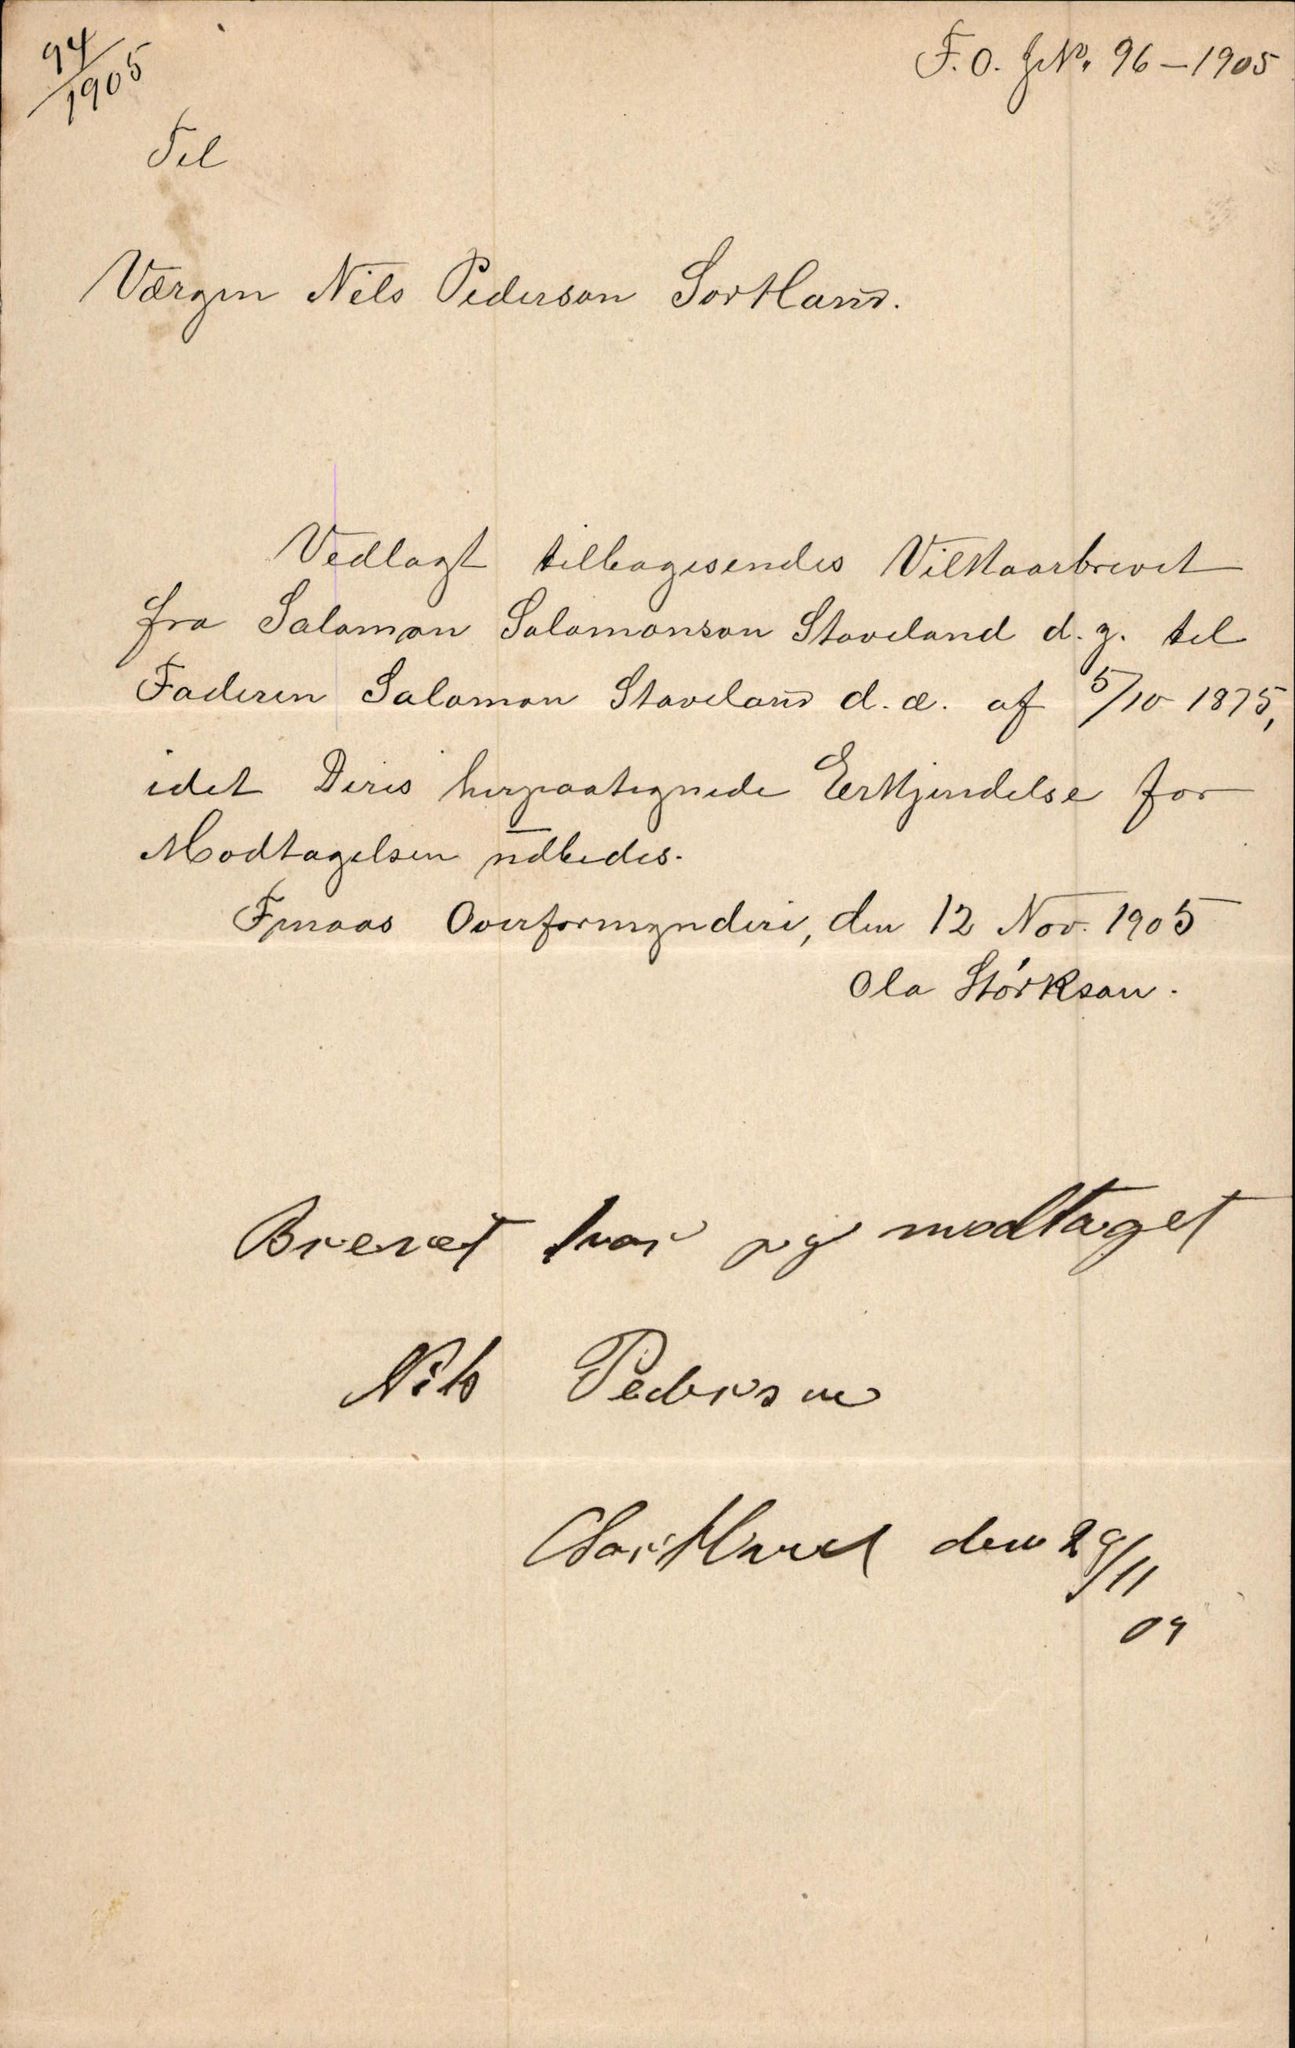 94/1905
F. O. J.No. 96 - 1905
Til
Værgen Nils Pederson Sortland.
Vedlagt tilbagesendes Vilkaarbrevet
fra Salamon Salamonson Staveland d.y. til
Faderen Salamon Staveland d.æ. af 5/10 1875,
idet Deres herpaategnede Erkjendelse for
Modtagelsen udbedes.
Fjnaas Overformynderi, den 12 Nov. 1905
Ola Størkson.
Brevet har jeg modtaget
Nils Pederson
Sortland den 29/11
05